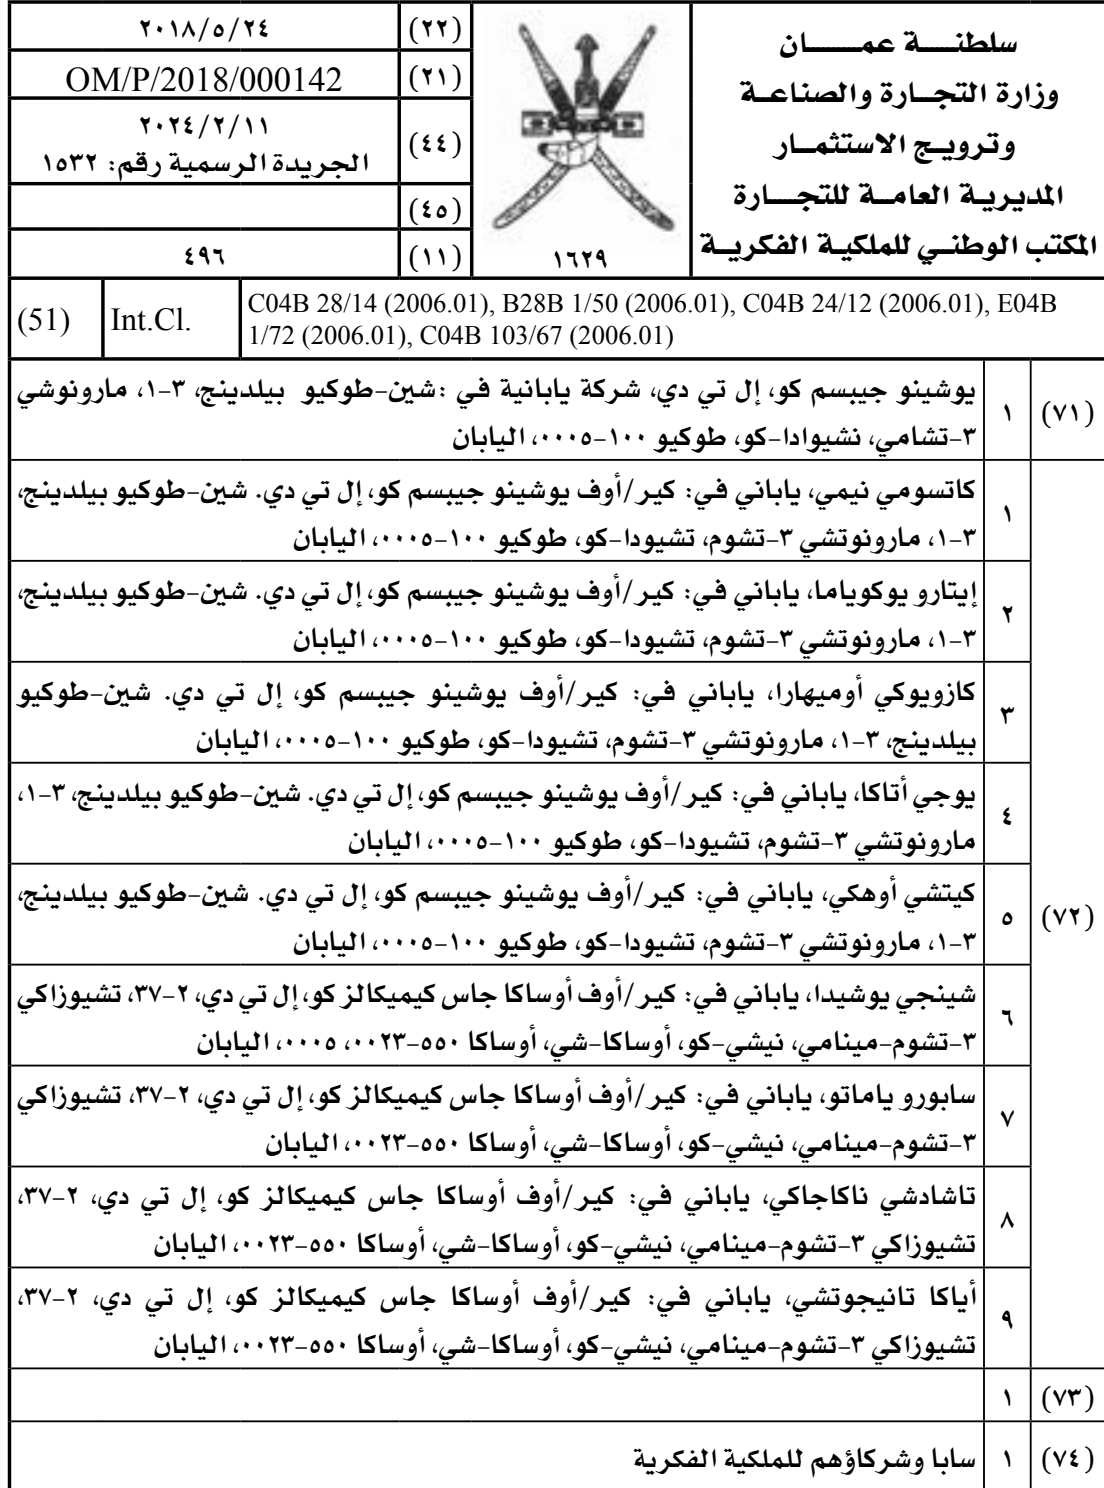 سلطنة عمان
وزارة التجارة والصناعة
وترويج الاستثمار
المديرية العامة للتجارة
المكتب الوطني للملكية الفكرية
١٦٢٩
(٢٢) ٢٠١٨/٥/٢٤
(٢١) OM/P/2018/000142
(٤٤) ٢٠٢٤/٢/١١
الجريدة الرسمية رقم: ١٥٣٢
(٤٥)
(١١) ٤٩٦
(51) Int.Cl. C04B 28/14 (2006.01), B28B 1/50 (2006.01), C04B 24/12 (2006.01), E04B
1/72 (2006.01), C04B 103/67 (2006.01)
(٧١) ١ يوشينو جيبسم كو، إل تي دي، شركة يابانية في :شين-طوكيو بيلدينج، ٣-١، مارونوشي
٣-تشامي، نشيوادا-كو، طوكيو ١٠٠-٠٠٠٥، اليابان
(٧٢) ١ كاتسومي نيمي، ياباني في: كير/أوف يوشينو جيبسم كو، إل تي دي. شين-طوكيو بيلدينج،
٣-١، مارونوتشي ٣-تشوم، تشيودا-كو، طوكيو ١٠٠-٠٠٠٥، اليابان
٢ إيتارو يوكوياما، ياباني في: كير/أوف يوشينو جيبسم كو، إل تي دي. شين-طوكيو بيلدينج،
٣-١، مارونوتشي ٣-تشوم، تشيودا-كو، طوكيو ١٠٠-٠٠٠٥، اليابان
٣ كازويوكي أوميهارا، ياباني في: كير/أوف يوشينو جيبسم كو، إل تي دي. شين-طوكيو
بيلدينج، ٣-١، مارونوتشي ٣-تشوم، تشيودا-كو، طوكيو ١٠٠-٠٠٠٥، اليابان
٤ يوجي أتاكا، ياباني في: كير/أوف يوشينو جيبسم كو، إل تي دي. شين-طوكيو بيلدينج، ٣-١،
مارونوتشي ٣-تشوم، تشيودا-كو، طوكيو ١٠٠-٠٠٠٥، اليابان
٥ كيتشي أوهكي، ياباني في: كير/أوف يوشينو جيبسم كو، إل تي دي. شين-طوكيو بيلدينج،
٣-١، مارونوتشي ٣-تشوم، تشيودا-كو، طوكيو ١٠٠-٠٠٠٥، اليابان
٦ شينجي يوشيدا، ياباني في: كير/أوف أوساكا جاس كيميكالز كو، إل تي دي، ٢-٣٧، تشيوزاكي
٣-تشوم-مينامي، نيشي-كو، أوساكا-شي، أوساكا ٥٥٠-٠٠٢٣، ٠٠٠٥، اليابان
٧ سابورو ياماتو، ياباني في: كير/أوف أوساكا جاس كيميكالز كو، إل تي دي، ٢-٣٧، تشيوزاكي
٣-تشوم-مينامي، نيشي-كو، أوساكا-شي، أوساكا ٥٥٠-٠٠٢٣، اليابان
٨ تاشادشي ناكاجاكي، ياباني في: كير/أوف أوساكا جاس كيميكالز كو، إل تي دي، ٢-٣٧،
تشيوزاكي ٣-تشوم-مينامي، نيشي-كو، أوساكا-شي، أوساكا ٥٥٠-٠٠٢٣، اليابان
٩ أياكا تانيجوتشي، ياباني في: كير/أوف أوساكا جاس كيميكالز كو، إل تي دي، ٢-٣٧،
تشيوزاكي ٣-تشوم-مينامي، نيشي-كو، أوساكا-شي، أوساكا ٥٥٠-٠٠٢٣، اليابان
(٧٣) ١
(٧٤) ١ سابا وشركاؤهم للملكية الفكرية